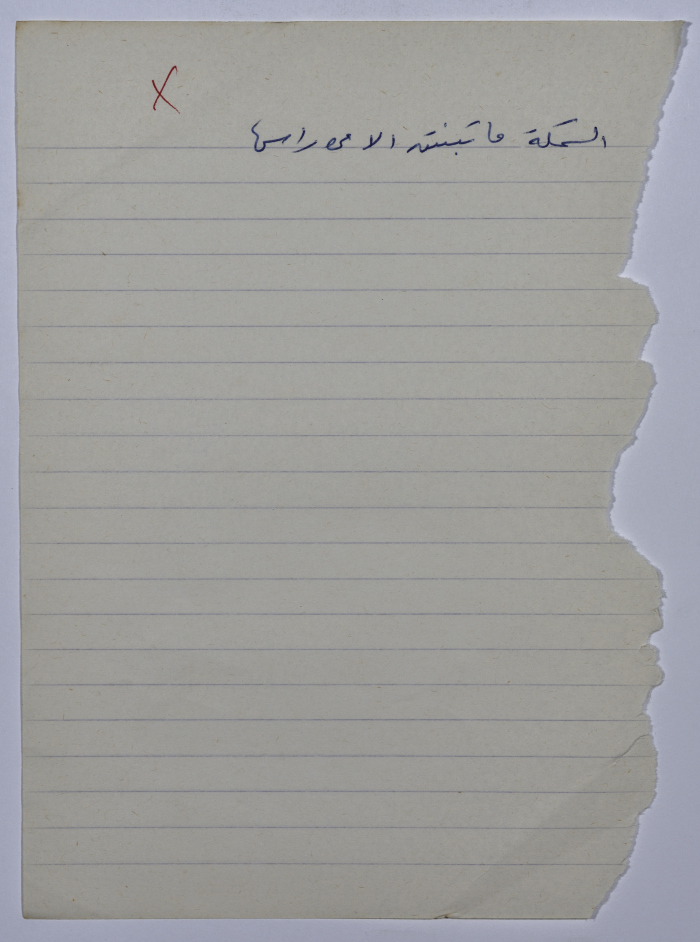 السمكة ما تبنتن الا من راسها